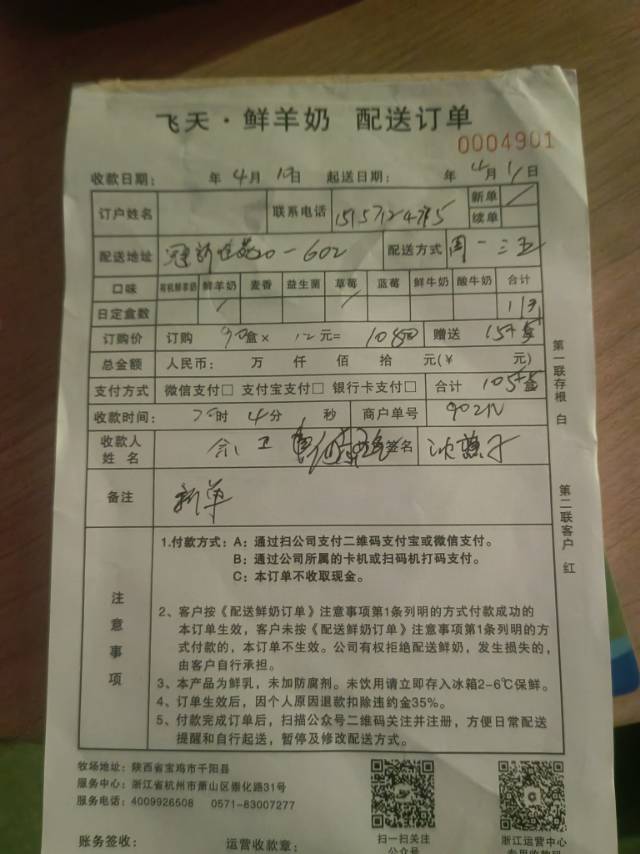 飞天·鲜羊奶 配送订单
0004901
收款日期: 年 4月 1日 起送日期: 年 4月 1日
订户姓名 联系电话 新单
续单
配送地址 20-602 配送方式 周一三五
口味 有机鲜羊奶 鲜羊奶 麦香 益生菌 草莓 蓝莓 鲜牛奶 酸牛奶 合计
日定盒数
订购价 订购 90盒× 12元= 1080 赠送 15盒
总金额 人民币: 万 仟 佰 拾 元(¥ 元)
支付方式 微信支付□ 支付宝支付□ 银行卡支付□ 合计 105盒
收款时间: 时 4分 秒 商户单号
收款人
姓名 签名
备注 新单
注意事项
1.付款方式: A: 通过扫公司支付二维码支付宝或微信支付。
B: 通过公司所属的卡机或扫码机打码支付。
C: 本订单不收取现金。
2、客户按《配送鲜奶订单》注意事项第1条列明的方式付款成功的
本订单生效，客户未按《配送鲜奶订单》注意事项第1条列明的方
式付款的，本订单不生效。公司有权拒绝配送鲜奶，发生损失的，
由客户自行承担。
3、本产品为鲜乳，未加防腐剂。未饮用请立即存入冰箱2-6℃保鲜。
4、订单生效后，因个人原因退款扣除违约金35%。
5、付款完成订单后，扫描公众号二维码关注并注册，方便日常配送
提醒和自行起送，暂停及修改配送方式。
第一联存根 白
第二联客户 红
牧场地址: 陕西省宝鸡市千阳县
服务中心: 浙江省杭州市萧山区崇化路31号
服务电话: 4009926508 0571-83007277
账务签收: 运营收款章:
扫一扫关注
公众号
浙江运营中心
专用收款码